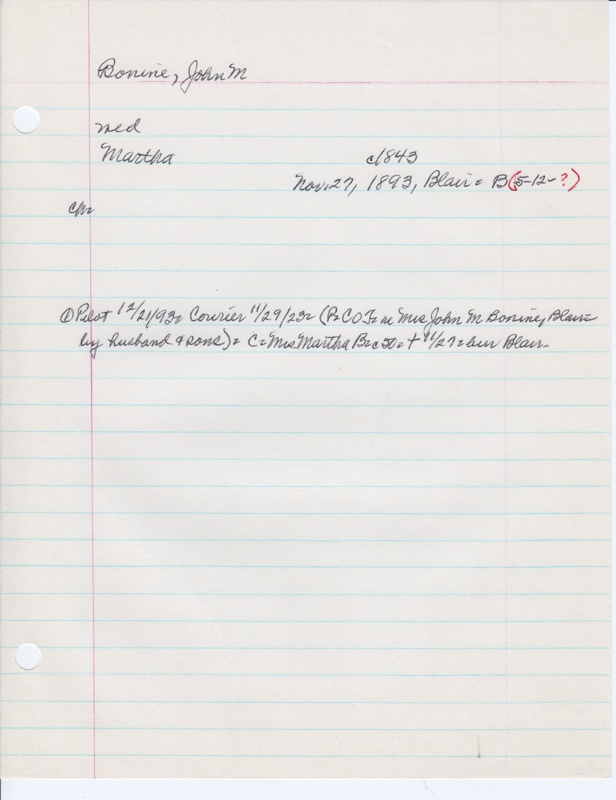 Bonine, John M
med
Martha c1843
Nov. 27, 1893, Blair = B (5-12-?)
ch=
① Pilot 12/21/93= Courier 11/29/23= (P=COT= re Mrs John M Bonine, Blair=
by husband & sons)= C= Mrs Martha B=c50= + 11/27= bur Blair.